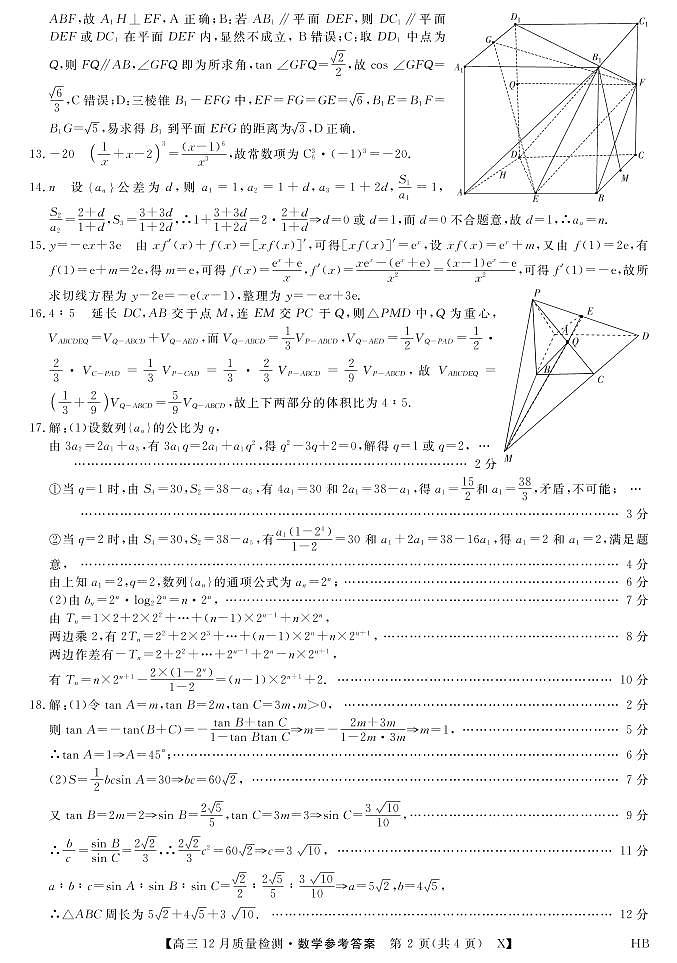 ABF,故 A₁H⊥EF,A 正确;B:若 AB₁∥平面 DEF,则 DC₁∥平面
DEF 或 DC₁ 在平面 DEF 内,显然不成立,B 错误;C:取 DD₁ 中点为
Q,则 FQ∥AB,∠GFQ 即为所求角,tan ∠GFQ=√2/2,故 cos ∠GFQ=
√6/3,C 错误;D:三棱锥 B₁-EFG 中,EF=FG=GE=√6,B₁E=B₁F=
B₁G=√5,易求得 B₁ 到平面 EFG 的距离为√3,D 正确.
D₁
C₁
G
B₁
A₁
Q
F
D
C
H
M
A
E
B
13.-20 (1/x+x-2)³=(x-1)⁶/x³,故常数项为 C₆³·(-1)³=-20.
14.n 设{aₙ}公差为 d,则 a₁=1,a₂=1+d,a₃=1+2d,S₁/a₁=1,
S₂/a₂=(2+d)/(1+d),S₃=(3+3d)/(1+2d),∴1+(3+3d)/(1+2d)=2·(2+d)/(1+d)⇒d=0 或 d=1,而 d=0 不合题意,故 d=1,∴aₙ=n.
15.y=-ex+3e 由 xf′(x)+f(x)=[xf(x)]′,可得[xf(x)]′=eˣ,设 xf(x)=eˣ+m,又由 f(1)=2e,有
f(1)=e+m=2e,得 m=e,可得 f(x)=(eˣ+e)/x,f′(x)=(xeˣ-(eˣ+e))/x²=((x-1)eˣ-e)/x²,可得 f′(1)=-e,故所
求切线方程为 y-2e=-e(x-1),整理为 y=-ex+3e.
16.4∶5 延长 DC,AB 交于点 M,连 EM 交 PC 于 Q,则△PMD 中,Q 为重心,
V_ABCDEQ=V_Q-ABCD+V_Q-AED,而 V_Q-ABCD=1/3 V_P-ABCD,V_Q-AED=1/2 V_Q-PAD=1/2·
2/3·V_C-PAD=1/3 V_P-CAD=1/3·2/3 V_P-ABCD=2/9 V_P-ABCD,故 V_ABCDEQ=
(1/3+2/9)V_Q-ABCD=5/9 V_Q-ABCD,故上下两部分的体积比为 4∶5.
P
E
A
D
Q
B
C
M
17.解:(1)设数列{aₙ}的公比为 q,
由 3a₂=2a₁+a₃,有 3a₁q=2a₁+a₁q²,得 q²-3q+2=0,解得 q=1 或 q=2, …
…………………………………………………………………… 2 分
①当 q=1 时,由 S₄=30,S₂=38-a₅,有 4a₁=30 和 2a₁=38-a₁,得 a₁=15/2和 a₁=38/3,矛盾,不可能; …
…………………………………………………………………………………………… 3 分
②当 q=2 时,由 S₄=30,S₂=38-a₅,有a₁(1-2⁴)/(1-2)=30 和 a₁+2a₁=38-16a₁,得 a₁=2 和 a₁=2,满足题
意, …………………………………………………………………………………………… 4 分
由上知 a₁=2,q=2,数列{aₙ}的通项公式为 aₙ=2ⁿ; ……………………………………………… 6 分
(2)由 bₙ=2ⁿ·log₂2ⁿ=n·2ⁿ, ……………………………………………………………………… 7 分
由 Tₙ=1×2+2×2²+…+(n-1)×2ⁿ⁻¹+n×2ⁿ,
两边乘 2,有 2Tₙ=2²+2×2³+…+(n-1)×2ⁿ+n×2ⁿ⁺¹, ……………………………………… 8 分
两边作差有-Tₙ=2+2²+…+2ⁿ⁻¹+2ⁿ-n×2ⁿ⁺¹,
有 Tₙ=n×2ⁿ⁺¹-2×(1-2ⁿ)/(1-2)=(n-1)×2ⁿ⁺¹+2. ……………………………………………… 10 分
18.解:(1)令 tan A=m,tan B=2m,tan C=3m,m>0, ……………………………………………… 2 分
则 tan A=-tan(B+C)=-(tan B+tan C)/(1-tan Btan C)⇒m=-(2m+3m)/(1-2m·3m)⇒m=1, ………………………… 5 分
∴tan A=1⇒A=45°; ……………………………………………………………………………… 6 分
(2)S=1/2bcsin A=30⇒bc=60√2, ………………………………………………………………… 7 分
又 tan B=2m=2⇒sin B=2√5/5,tan C=3m=3⇒sin C=3√10/10, …………………………………… 9 分
∴b/c=sin B/sin C=2√2/3,∴2√2/3c²=60√2⇒c=3√10, ……………………………………………… 11 分
a∶b∶c=sin A∶sin B∶sin C=√2/2∶2√5/5∶3√10/10⇒a=5√2,b=4√5,
∴△ABC 周长为 5√2+4√5+3√10. ……………………………………………………………… 12 分
【高三 12 月质量检测·数学参考答案 第 2 页(共 4 页) X】 HB